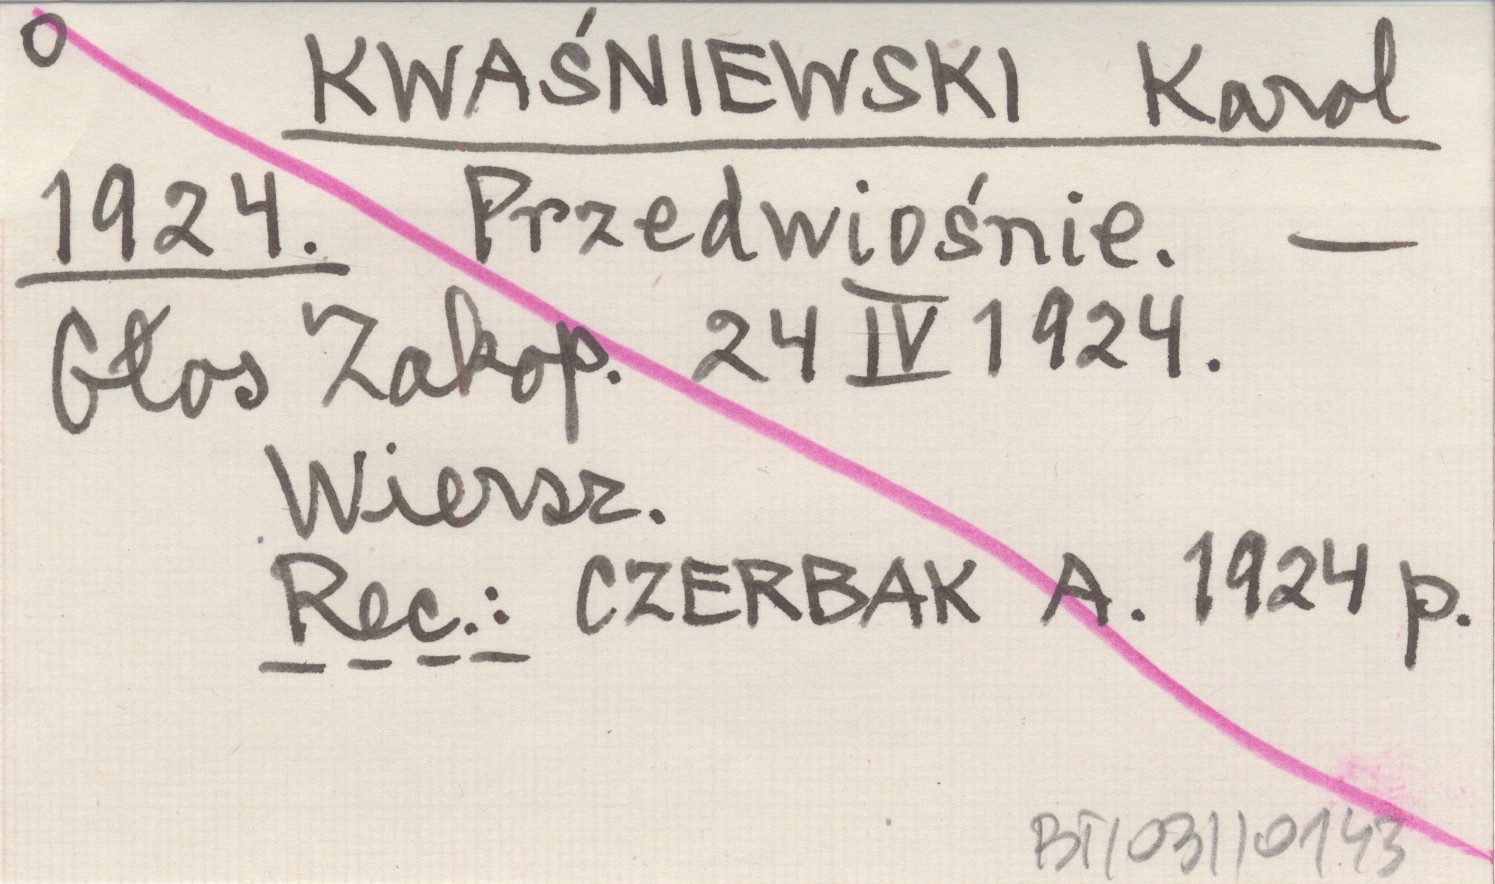 O KWAŚNIEWSKI Karol
1924. Przedwiośnie. —
Głos Zakop. 24 IV 1924.
Wiersz.
Rec.: CZERBAK A. 1924 p.
BT/031/0143